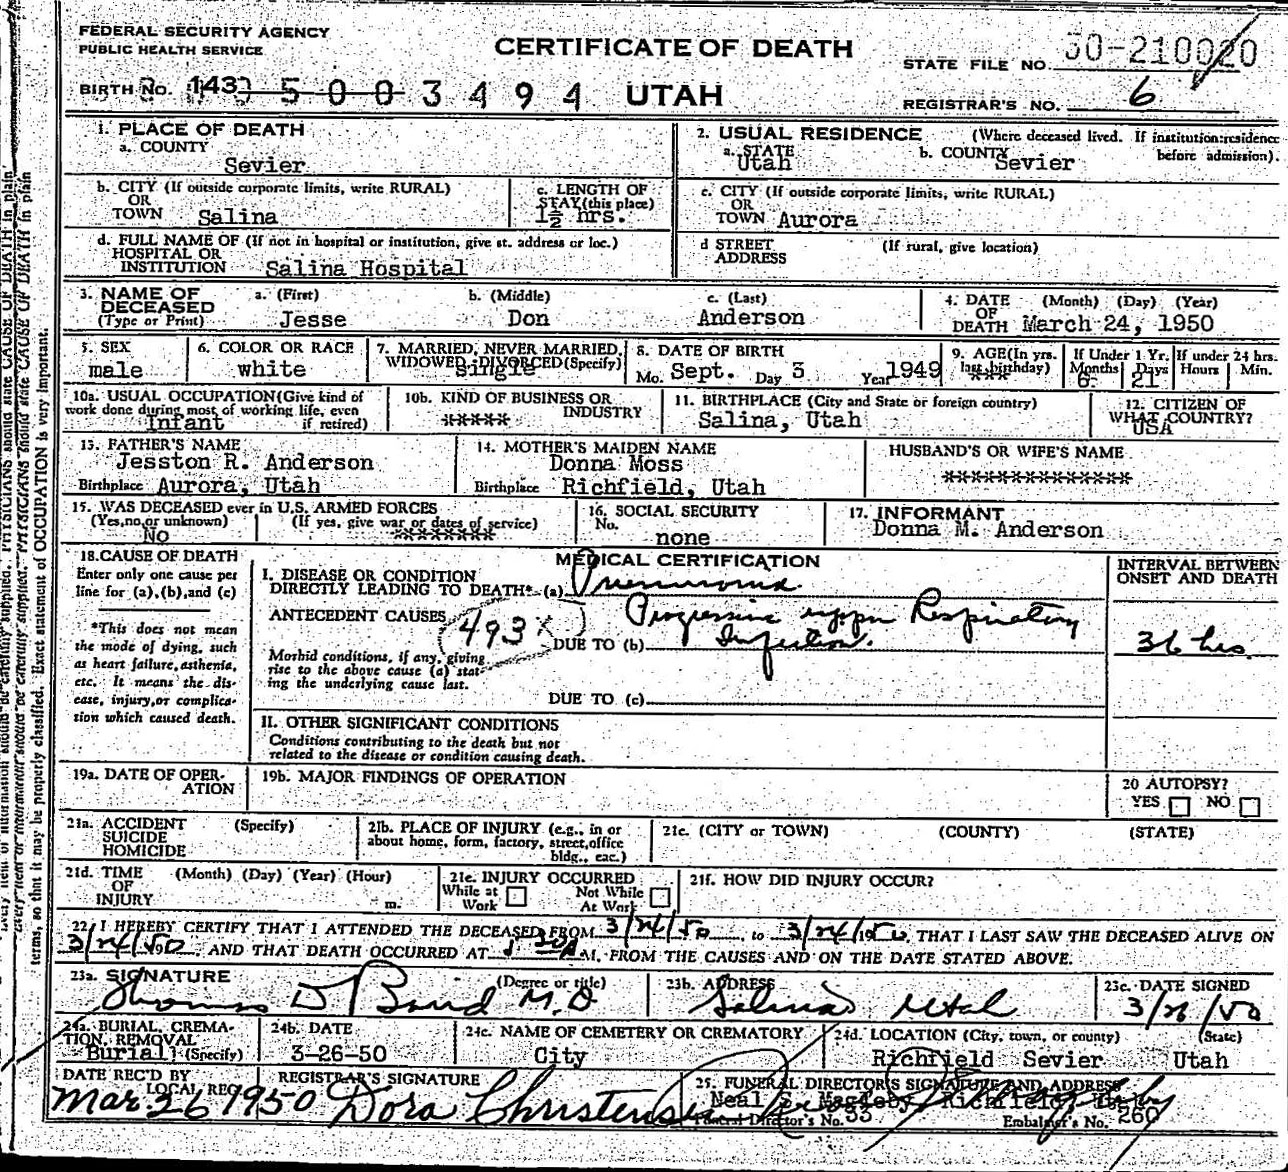 FEDERAL SECURITY AGENCY
PUBLIC HEALTH SERVICE
CERTIFICATE OF DEATH
STATE FILE NO. 50-210020
BIRTH No. 143 5 0 0 3 4 9 4 UTAH
REGISTRAR'S NO. 6
1. PLACE OF DEATH
a. COUNTY
Sevier
2. USUAL RESIDENCE (Where deceased lived. If institution:residence before admission).
a. STATE Utah b. COUNTY Sevier
b. CITY (If outside corporate limits, write RURAL)
OR
TOWN Salina
c. LENGTH OF
STAY (this place)
1½ hrs.
c. CITY (If outside corporate limits, write RURAL)
OR
TOWN Aurora
d. FULL NAME OF (If not in hospital or institution, give st. address or loc.)
HOSPITAL OR
INSTITUTION Salina Hospital
d STREET (If rural, give location)
ADDRESS
3. NAME OF DECEASED (Type or Print)
a. (First) Jesse
b. (Middle) Don
c. (Last) Anderson
4. DATE OF DEATH (Month) (Day) (Year)
March 24, 1950
5. SEX
male
6. COLOR OR RACE
white
7. MARRIED, NEVER MARRIED,
WIDOWED, DIVORCED (Specify)
Single
8. DATE OF BIRTH
Mo. Sept. Day 3 Year 1949
9. AGE (In yrs. last birthday)
***
If Under 1 Yr.
Months 6 Days 21
If under 24 hrs.
Hours Min.
10a. USUAL OCCUPATION (Give kind of
work done during most of working life, even
if retired)
Infant
10b. KIND OF BUSINESS OR
INDUSTRY
*****
11. BIRTHPLACE (City and State or foreign country)
Salina, Utah
12. CITIZEN OF
WHAT COUNTRY?
USA
13. FATHER'S NAME
Jesston R. Anderson
Birthplace Aurora, Utah
14. MOTHER'S MAIDEN NAME
Donna Moss
Birthplace Richfield, Utah
HUSBAND'S OR WIFE'S NAME
****************
15. WAS DECEASED ever in U.S. ARMED FORCES
(Yes, no, or unknown) (If yes, give war or dates of service)
No ********
16. SOCIAL SECURITY
No.
none
17. INFORMANT
Donna M. Anderson
18. CAUSE OF DEATH
Enter only one cause per
line for (a), (b), and (c)
*This does not mean
the mode of dying, such
as heart failure, asthenia,
etc. It means the dis-
ease, injury, or complica-
tion which caused death.
MEDICAL CERTIFICATION
I. DISEASE OR CONDITION
DIRECTLY LEADING TO DEATH* (a) Pneumonia
ANTECEDENT CAUSES
493X
Progressive upper Respiratory
DUE TO (b) Infection.
Morbid conditions, if any, giving
rise to the above cause (a) stat-
ing the underlying cause last.
DUE TO (c)
II. OTHER SIGNIFICANT CONDITIONS
Conditions contributing to the death but not
related to the disease or condition causing death.
INTERVAL BETWEEN
ONSET AND DEATH
36 hrs.
19a. DATE OF OPER-
ATION
19b. MAJOR FINDINGS OF OPERATION
20 AUTOPSY?
YES NO
21a. ACCIDENT (Specify)
SUICIDE
HOMICIDE
21b. PLACE OF INJURY (e.g., in or
about home, form, factory, street, office
bldg., eac.)
21c. (CITY or TOWN) (COUNTY) (STATE)
21d. TIME (Month) (Day) (Year) (Hour)
OF
INJURY m.
21e. INJURY OCCURRED
While at Work Not While At Work
21f. HOW DID INJURY OCCUR?
22. I HEREBY CERTIFY THAT I ATTENDED THE DECEASED FROM 3/24/50, to 3/24/1950, THAT I LAST SAW THE DECEASED ALIVE ON
3/24/50, AND THAT DEATH OCCURRED AT M. FROM THE CAUSES AND ON THE DATE STATED ABOVE.
23a. SIGNATURE (Degree or title)
Thomas D M.D
23b. ADDRESS
Salina Utah
23c. DATE SIGNED
3/26/50
24a. BURIAL, CREMA-
TION, REMOVAL
Burial (Specify)
24b. DATE
3-26-50
24c. NAME OF CEMETERY OR CREMATORY
City
24d. LOCATION (City, town, or county) (State)
Richfield Sevier Utah
DATE REC'D BY
LOCAL REG.
Mar 26 1950
REGISTRAR'S SIGNATURE
Dora Christensen
25. FUNERAL DIRECTOR'S SIGNATURE AND ADDRESS
Neal S. Magleby Richfield, Utah
Funeral Director's No. 33 Embalmer's No. 260